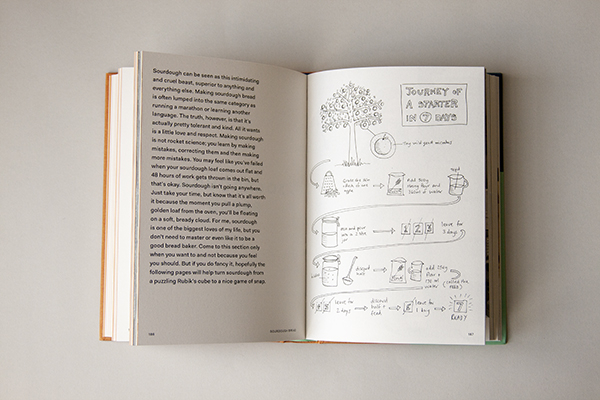 Sourdough can be seen as this intimidating
and cruel beast, superior to anything and
everything else. Making sourdough bread
is often lumped into the same category as
running a marathon or learning another
language. The truth, however, is that it's
actually pretty tolerant and kind. All it wants
is a little love and respect. Making sourdough
is not rocket science; you learn by making
mistakes, correcting them and then making
more mistakes. You may feel like you've failed
when your sourdough loaf comes out flat and
48 hours of work gets thrown in the bin, but
that's okay. Sourdough isn't going anywhere.
Just take your time, but know that it's all worth
it because the moment you pull a plump,
golden loaf from the oven, you'll be floating
on a soft, bready cloud. For me, sourdough
is one of the biggest loves of my life, but you
don't need to master or even like it to be a
good bread baker. Come to this section only
when you want to and not because you feel
you should. But if you do fancy it, hopefully the
following pages will help turn sourdough from
a puzzling Rubik's cube to a nice game of snap.
JOURNEY OF
A STARTER
IN 7 DAYS
Grate the skin
of one
apple
and
water
mix and
in a
jar
1 2 3
leave for
3 days
discard
half
add
flour &
water
leave for
2 days
discard
half &
feed
6
leave for
1 day
7
READY